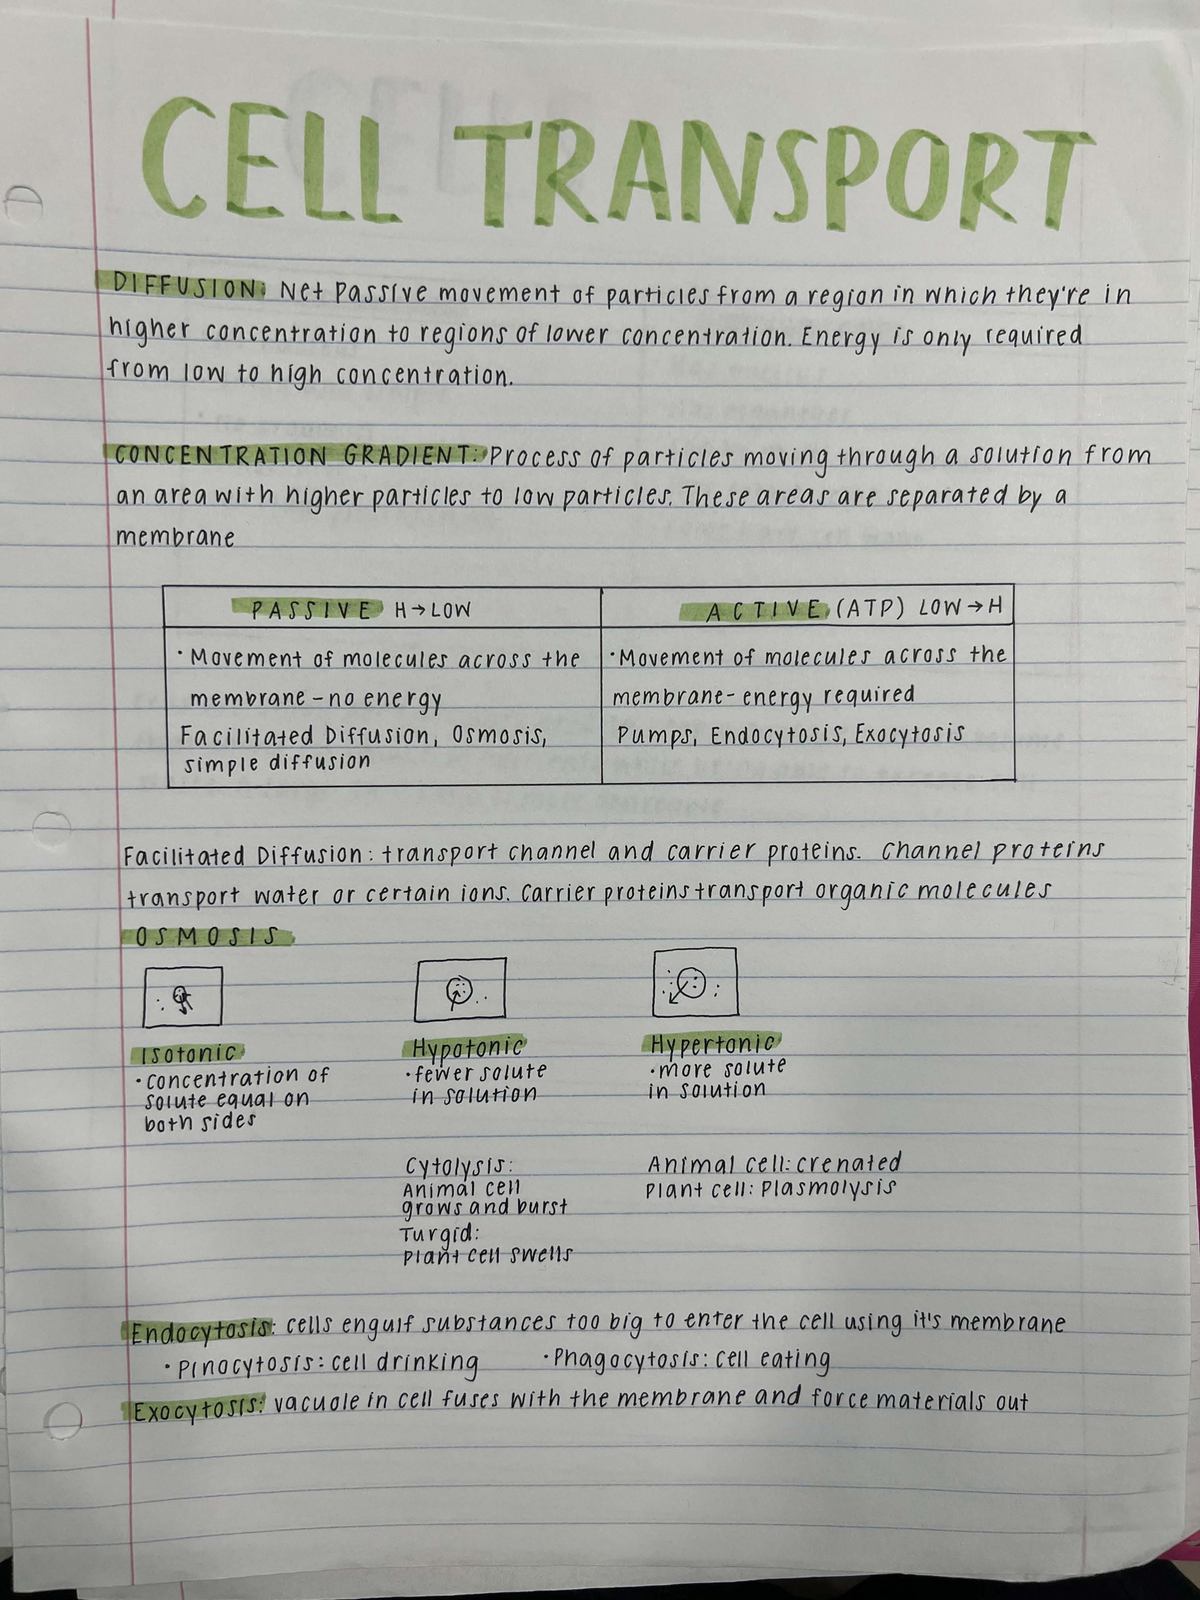 CELL TRANSPORT
DIFFUSION: Net passive movement of particles from a region in which they're in
higher concentration to regions of lower concentration. Energy is only required
from low to high concentration.
CONCENTRATION GRADIENT: Process of particles moving through a solution from
an area with higher particles to low particles. These areas are separated by a
membrane
PASSIVE H→LOW
· Movement of molecules across the
membrane - no energy
Facilitated Diffusion, Osmosis,
simple diffusion
ACTIVE (ATP) LOW→H
· Movement of molecules across the
membrane - energy required
Pumps, Endocytosis, Exocytosis
Facilitated Diffusion: transport channel and carrier proteins. Channel proteins
transport water or certain ions. Carrier proteins transport organic molecules
OSMOSIS
Isotonic
· concentration of
solute equal on
both sides
Hypotonic
· fewer solute
in solution
Cytolysis:
Animal cell
grows and burst
Turgid:
Plant cell swells
Hypertonic
· more solute
in solution
Animal cell: crenated
Plant cell: Plasmolysis
Endocytosis: cells engulf substances too big to enter the cell using it's membrane
· Pinocytosis: cell drinking · Phagocytosis: cell eating
Exocytosis: vacuole in cell fuses with the membrane and force materials out